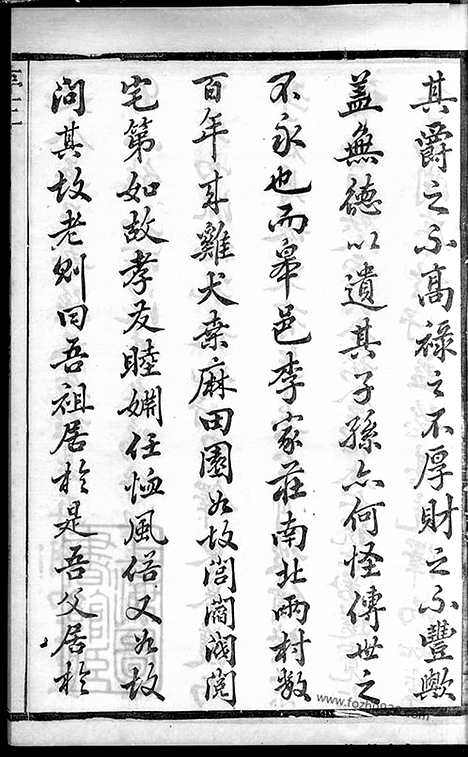 其爵之不高祿之不厚財之不豐歟
蓋無德以遺其子孫亦何怪傳世之
不永也而皋邑李家莊南北兩村數
百年來雞犬桑麻田園如故閭閻閥閱
宅第如故孝友睦婣任恤風俗又如故
問其故老則曰吾祖居於是吾父居於
www.fozhu